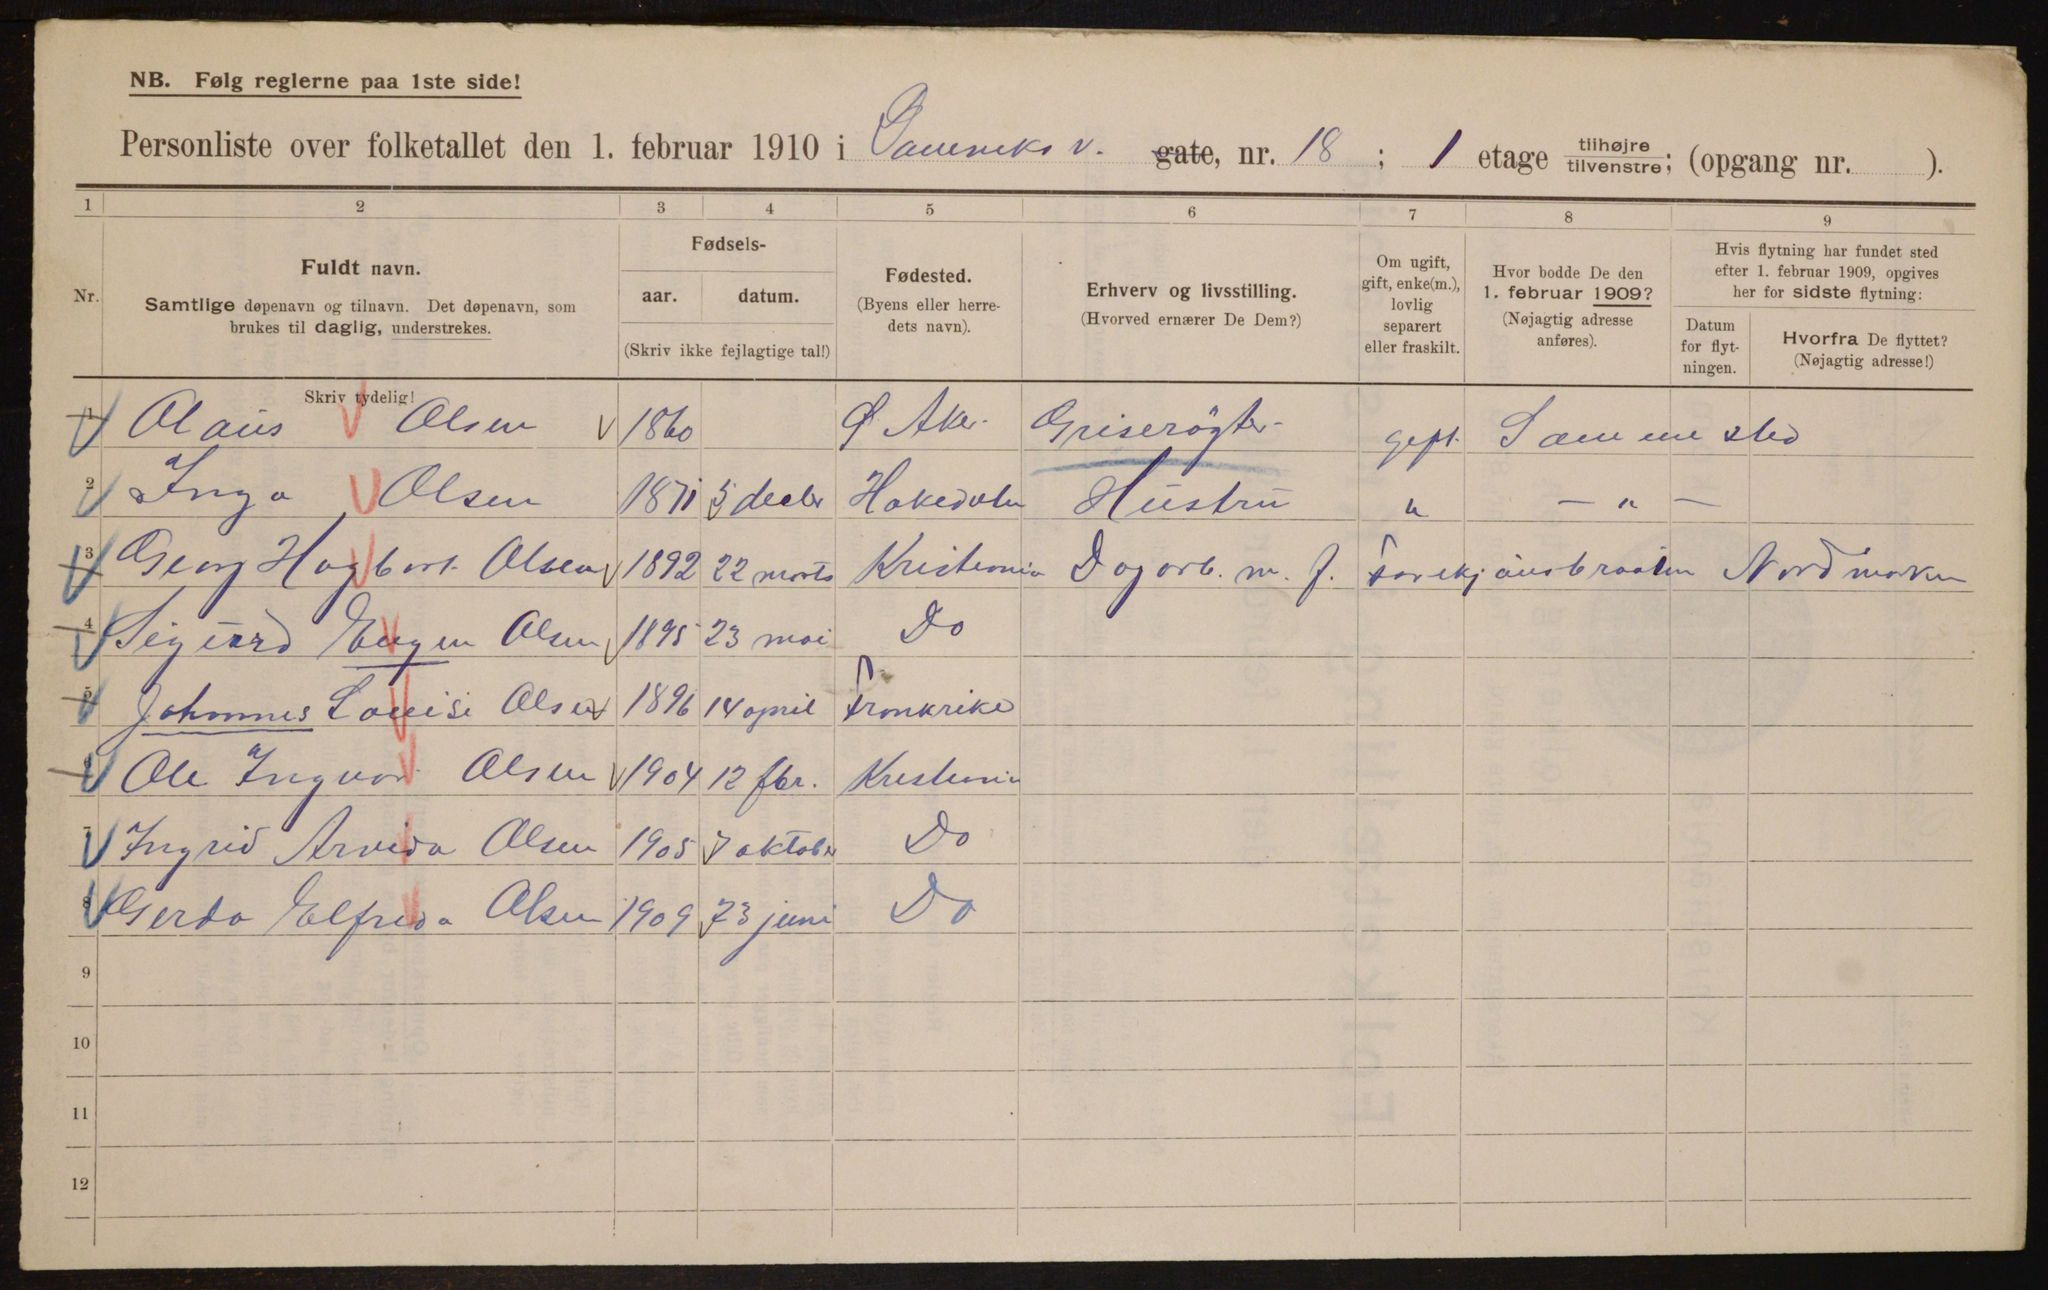 NB. Følg reglerne paa 1ste side!
Personliste over folketallet den 1. februar 1910 i v. gate, nr. 18 ; 1 etage tilhøjre tilvenstre; (opgang nr. ).
1 2 3 4 5 6 7 8 9
Nr.
Fuldt navn.
Samtlige døpenavn og tilnavn. Det døpenavn, som
brukes til daglig, understrekes.
Skriv tydelig!
Fødsels-
aar. datum.
(Skriv ikke fejlagtige tal!)
Fødested.
(Byens eller herre-
dets navn).
Erhverv og livsstilling.
(Hvorved ernærer De Dem?)
Om ugift,
gift, enke(m.),
lovlig
separert
eller fraskilt.
Hvor bodde De den
1. februar 1909?
(Nøjagtig adresse
anføres).
Hvis flytning har fundet sted
efter 1. februar 1909, opgives
her for sidste flytning:
Datum
for flyt-
ningen.
Hvorfra De flyttet?
(Nøjagtig adresse!)
1 Olaus Olsen 1860 Ø. Aker Griserøgter gift Samme sted
2 Inga Olsen 1871 5 decbr Hakedalen Hustru " — " —
3 Georg Hagbart Olsen 1892 22 marts Kristiania Dagarb. m. f. Nordmarken
4 Sigurd Eugen Olsen 1895 23 mai Do
5 Johannes Louisi Olsen 1896 14 april Frankrike
6 Ole Ingvar Olsen 1904 12 fbr. Kristiania
7 Ingrid Arvida Olsen 1905 7 oktober Do
8 Gerda Elfrida Olsen 1909 23 juni Do
9
10
11
12